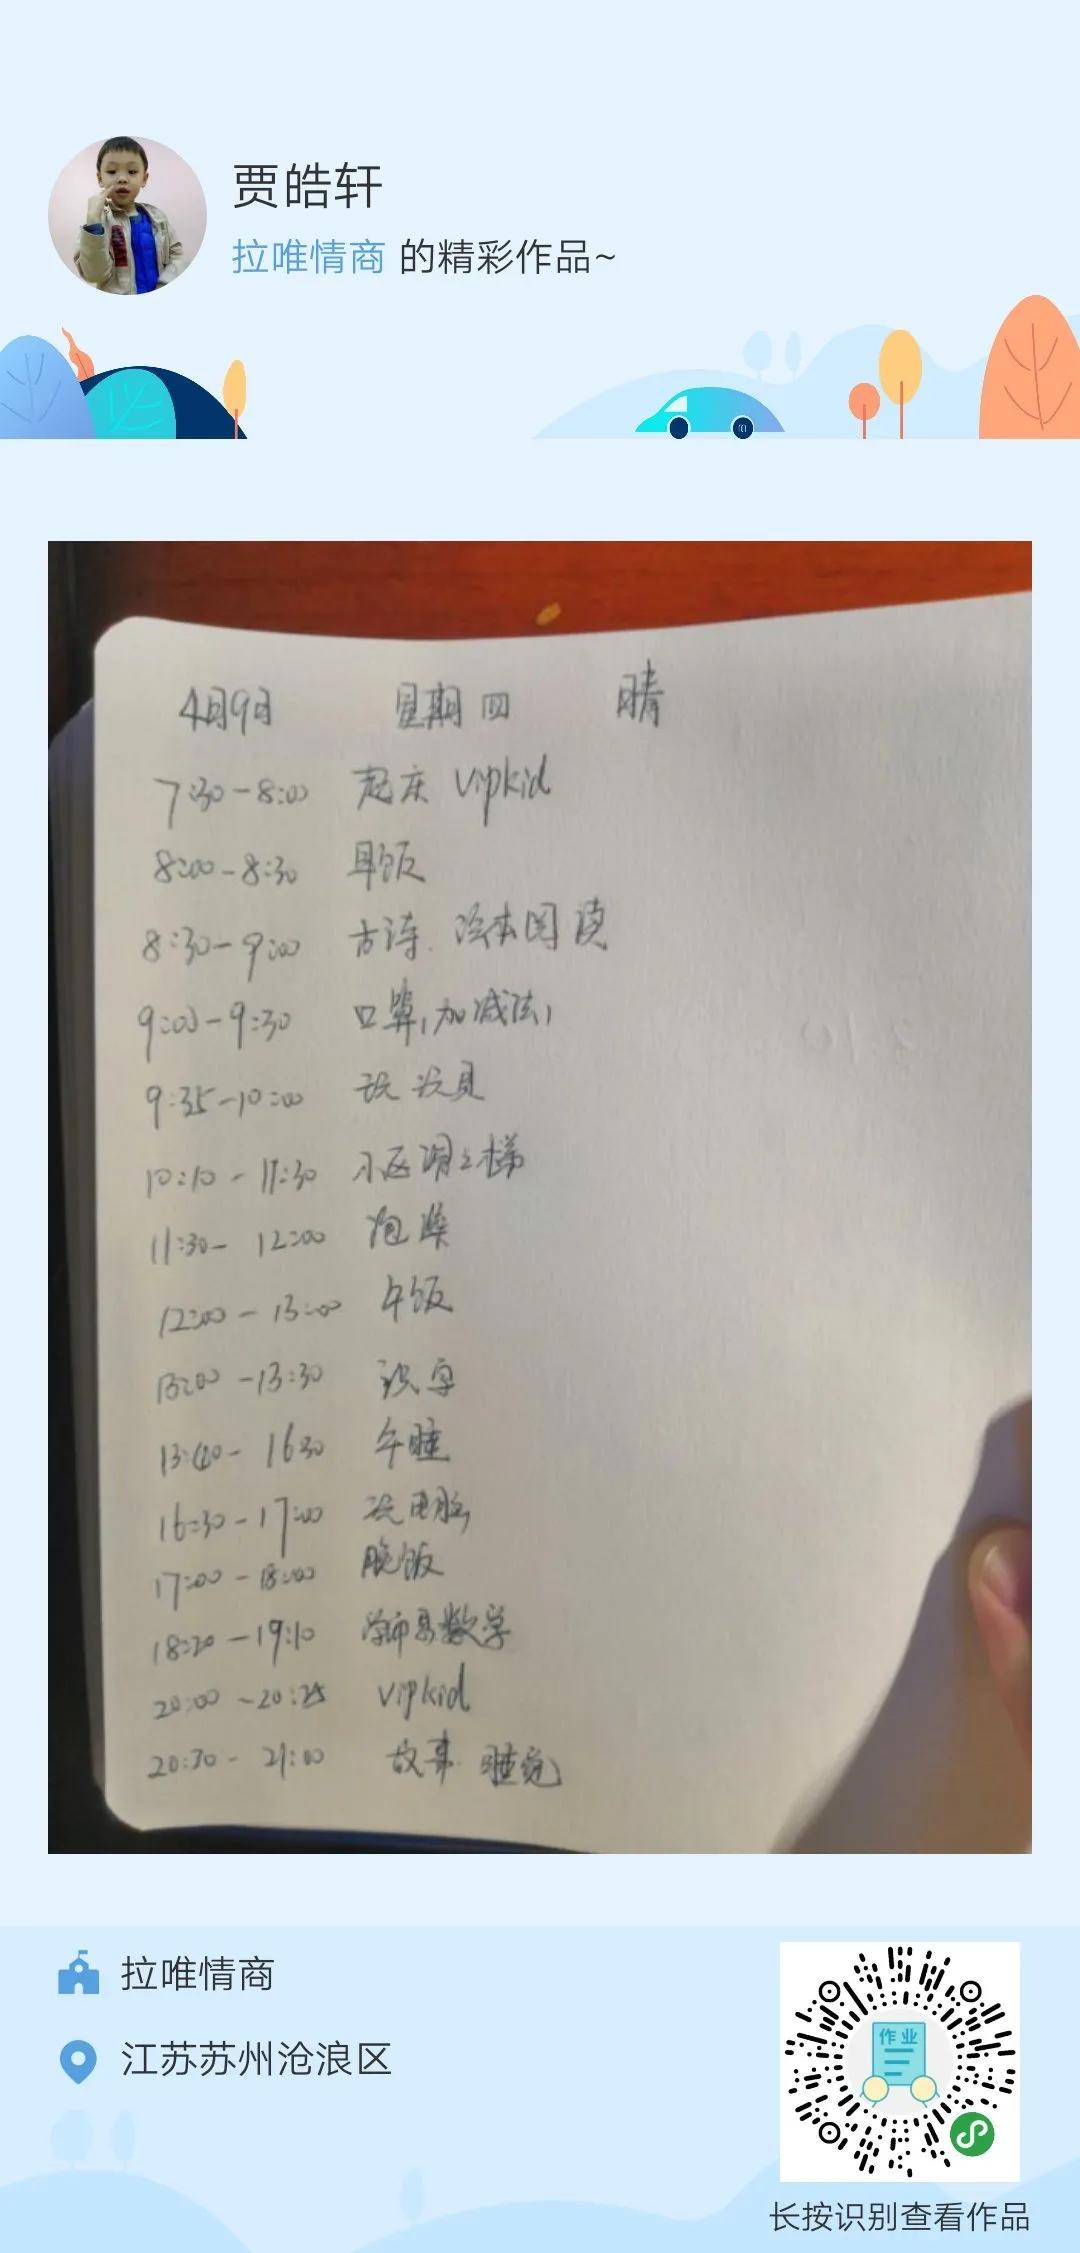 贾皓轩
拉唯情商 的精彩作品~
4月9日 星期四 晴
7:30-8:00 起床 Vipkid
8:00-8:30 早饭
8:30-9:00 古诗、绘本阅读
9:00-9:30 口算(加减法)
9:35-10:00 玩玩具
10:10-11:30 小区滑滑梯
11:30-12:00 泡澡
12:00-13:00 午饭
13:00-13:30 识字
13:40-16:30 午睡
16:30-17:00 玩电脑
17:00-18:00 晚饭
18:20-19:10 学而思数学
20:00-20:25 Vipkid
20:30-21:00 故事 睡觉
拉唯情商
江苏苏州沧浪区
作业
长按识别查看作品